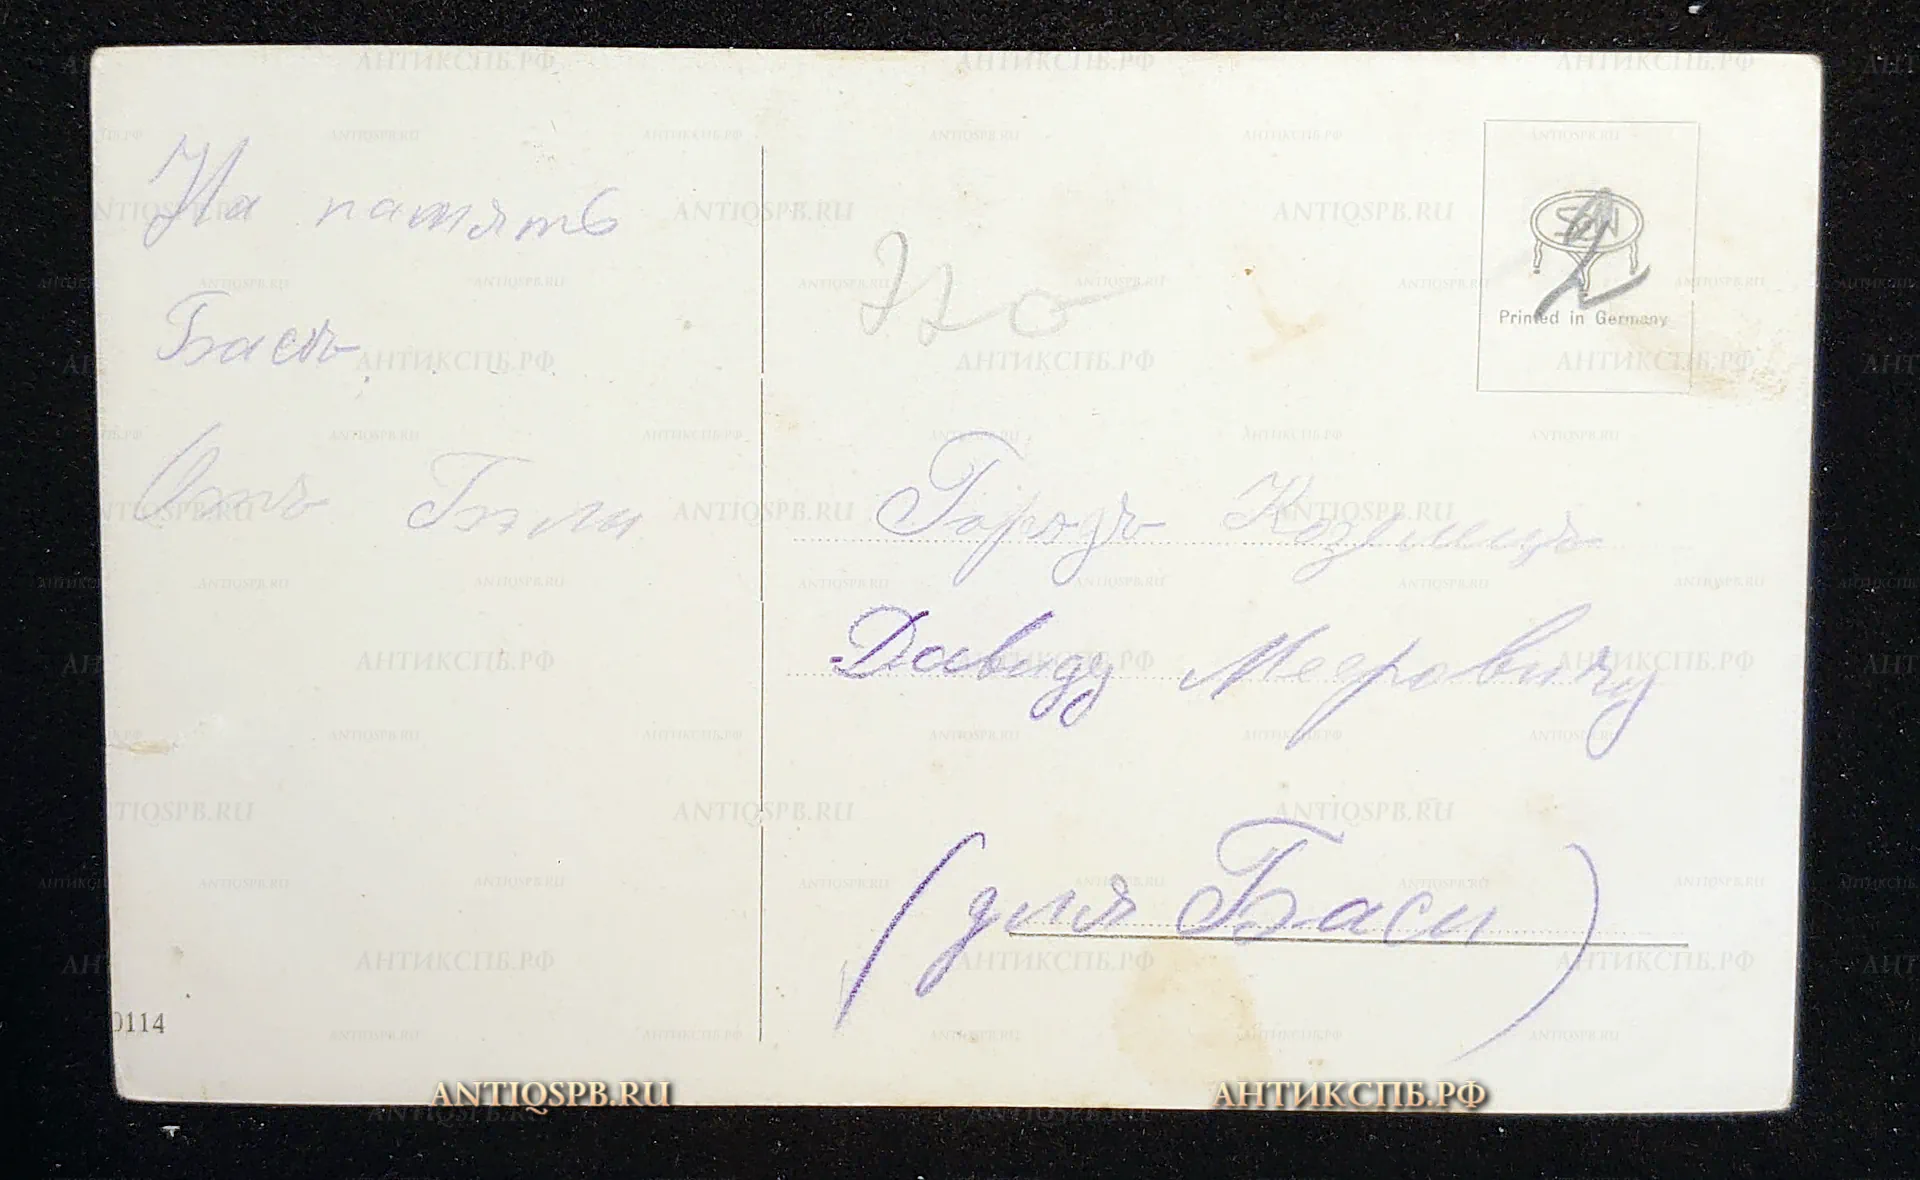 На память
Басѣ
Отъ Бэли
Printed in Germany
Городъ Козелецъ
Давиду Меэровичу
(для Баси)
0114
ANTIQSPB.RU
АНТИКСПБ.РФ